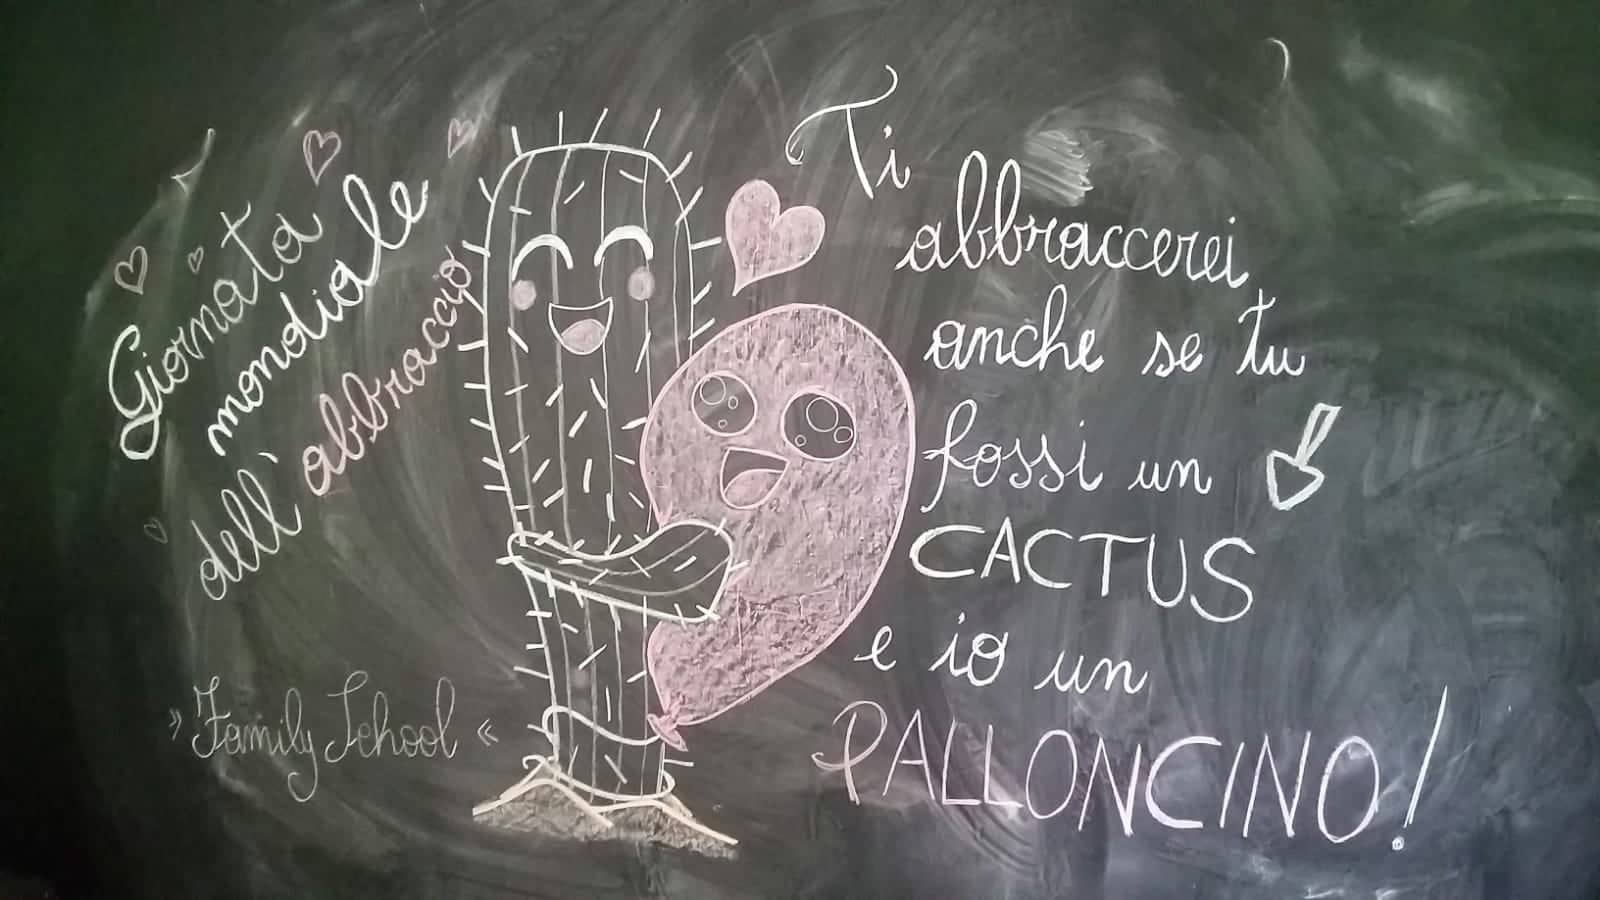 Giornata
mondiale
dell'abbraccio
Ti
abbraccerei
anche se tu
fossi un
CACTUS
e io un
PALLONCINO!
» Family School «